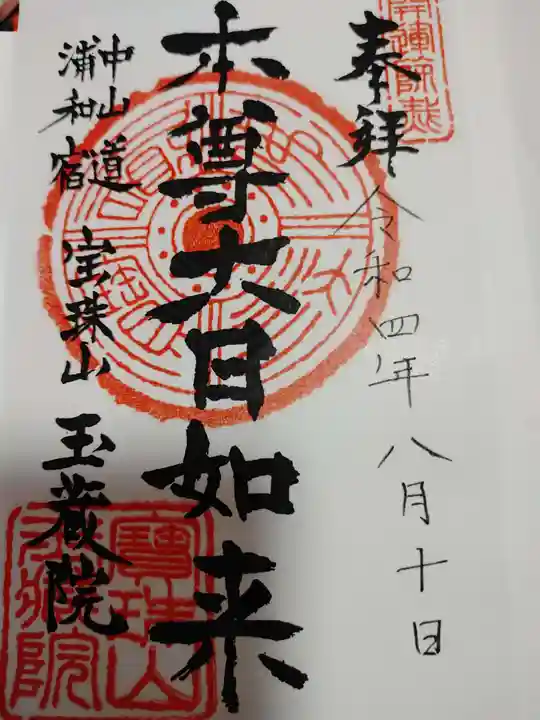 奉拝
令和四年八月十日
本尊大日如来
中山道
浦和宿
宝珠山 玉蔵院
寶珠山